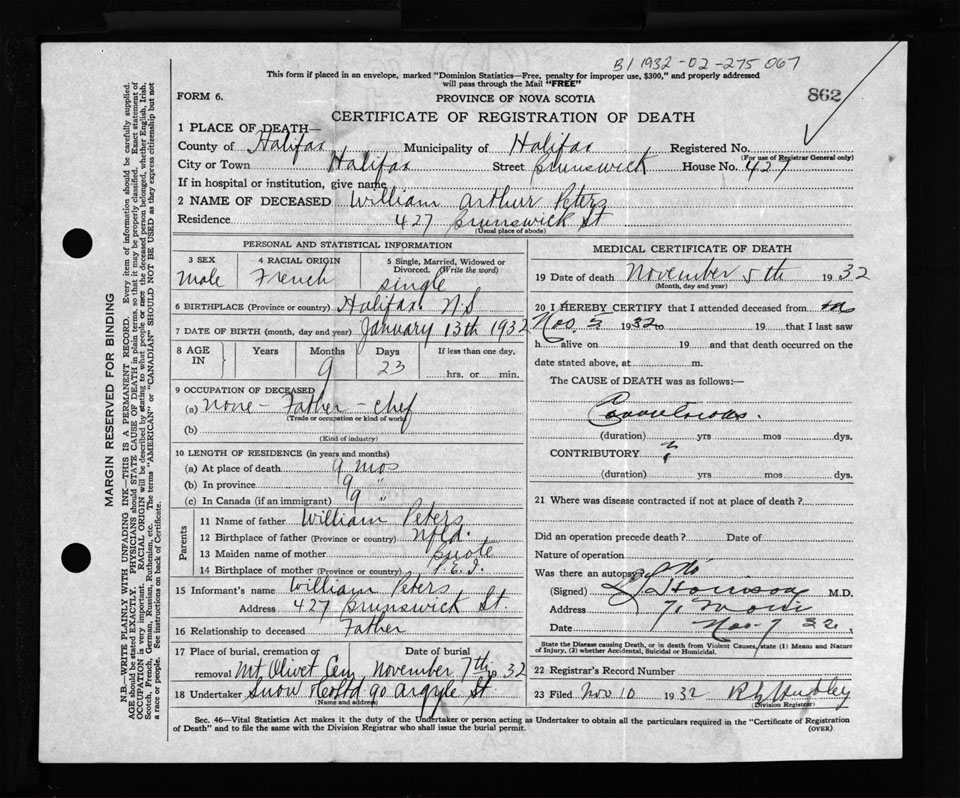 B1 1932-02-275 067
This form if placed in an envelope, marked "Dominion Statistics—Free, penalty for improper use, $300," and properly addressed
will pass through the Mail "FREE"
FORM 6.
PROVINCE OF NOVA SCOTIA
862
CERTIFICATE OF REGISTRATION OF DEATH
1 PLACE OF DEATH—
County of Halifax Municipality of Halifax Registered No.
(For use of Registrar General only)
City or Town Halifax Street Brunswick House No. 427
If in hospital or institution, give name
2 NAME OF DECEASED William Arthur Peters
Residence 427 Brunswick St
(Usual place of abode)
PERSONAL AND STATISTICAL INFORMATION
3 SEX 4 RACIAL ORIGIN 5 Single, Married, Widowed or
Divorced. (Write the word)
male French single
6 BIRTHPLACE (Province or country) Halifax N.S
7 DATE OF BIRTH (month, day and year) January 13th 1932
8 AGE IN Years Months Days If less than one day.
9 23 hrs. or min.
9 OCCUPATION OF DECEASED
(a) none - Father - chef
(Trade or occupation or kind of work)
(b)
(Kind of industry)
10 LENGTH OF RESIDENCE (in years and months)
(a) At place of death 9 mos
(b) In province 9 "
(c) In Canada (if an immigrant) 9 "
Parents
11 Name of father William Peters
12 Birthplace of father (Province or country) Nfld.
13 Maiden name of mother
14 Birthplace of mother (Province or country) P.E.I.
15 Informant's name William Peters
Address 427 Brunswick St.
16 Relationship to deceased Father
17 Place of burial, cremation or removal Date of burial
Mt Olivet Cem, November 7th 1932
18 Undertaker Snow & Co Ltd 90 Argyle St
(Name and address)
MEDICAL CERTIFICATE OF DEATH
19 Date of death November 5th 1932
(Month, day and year)
20 I HEREBY CERTIFY that I attended deceased from on
Nov. 5 1932 to 19 that I last saw
h alive on 19 and that death occurred on the
date stated above, at m.
The CAUSE of DEATH was as follows:—
Convulsions.
(duration) yrs mos dys.
CONTRIBUTORY ?
(duration) yrs mos dys.
21 Where was disease contracted if not at place of death?
Did an operation precede death? Date of
Nature of operation
Was there an autopsy? No
(Signed) Morrison M.D.
Address
Date Nov-7 32.
State the Disease causing Death, or in death from Violent Causes, state (1) Means and Nature
of Injury, (2) whether Accidental, Suicidal or Homicidal.
22 Registrar's Record Number
23 Filed Nov 10 1932
(Division Registrar)
Sec. 46—Vital Statistics Act makes it the duty of the Undertaker or person acting as Undertaker to obtain all the particulars required in the "Certificate of Registration
of Death" and to file the same with the Division Registrar who shall issue the burial permit.
(OVER)
MARGIN RESERVED FOR BINDING
N.B.—WRITE PLAINLY WITH UNFADING INK—THIS IS A PERMANENT RECORD. Every item of information should be carefully supplied.
AGE should be stated EXACTLY. PHYSICIANS should STATE CAUSE OF DEATH in plain terms, so that it may be properly classified. Exact statement of
OCCUPATION is very important. RACIAL ORIGIN will be described by stating to what people or race the deceased person belonged, whether English, Irish,
Scotch, French, German, Russian, Ruthenian, etc. The terms "AMERICAN" or "CANADIAN" SHOULD NOT BE USED as they express citizenship but not
a race or people. See instructions on back of Certificate.